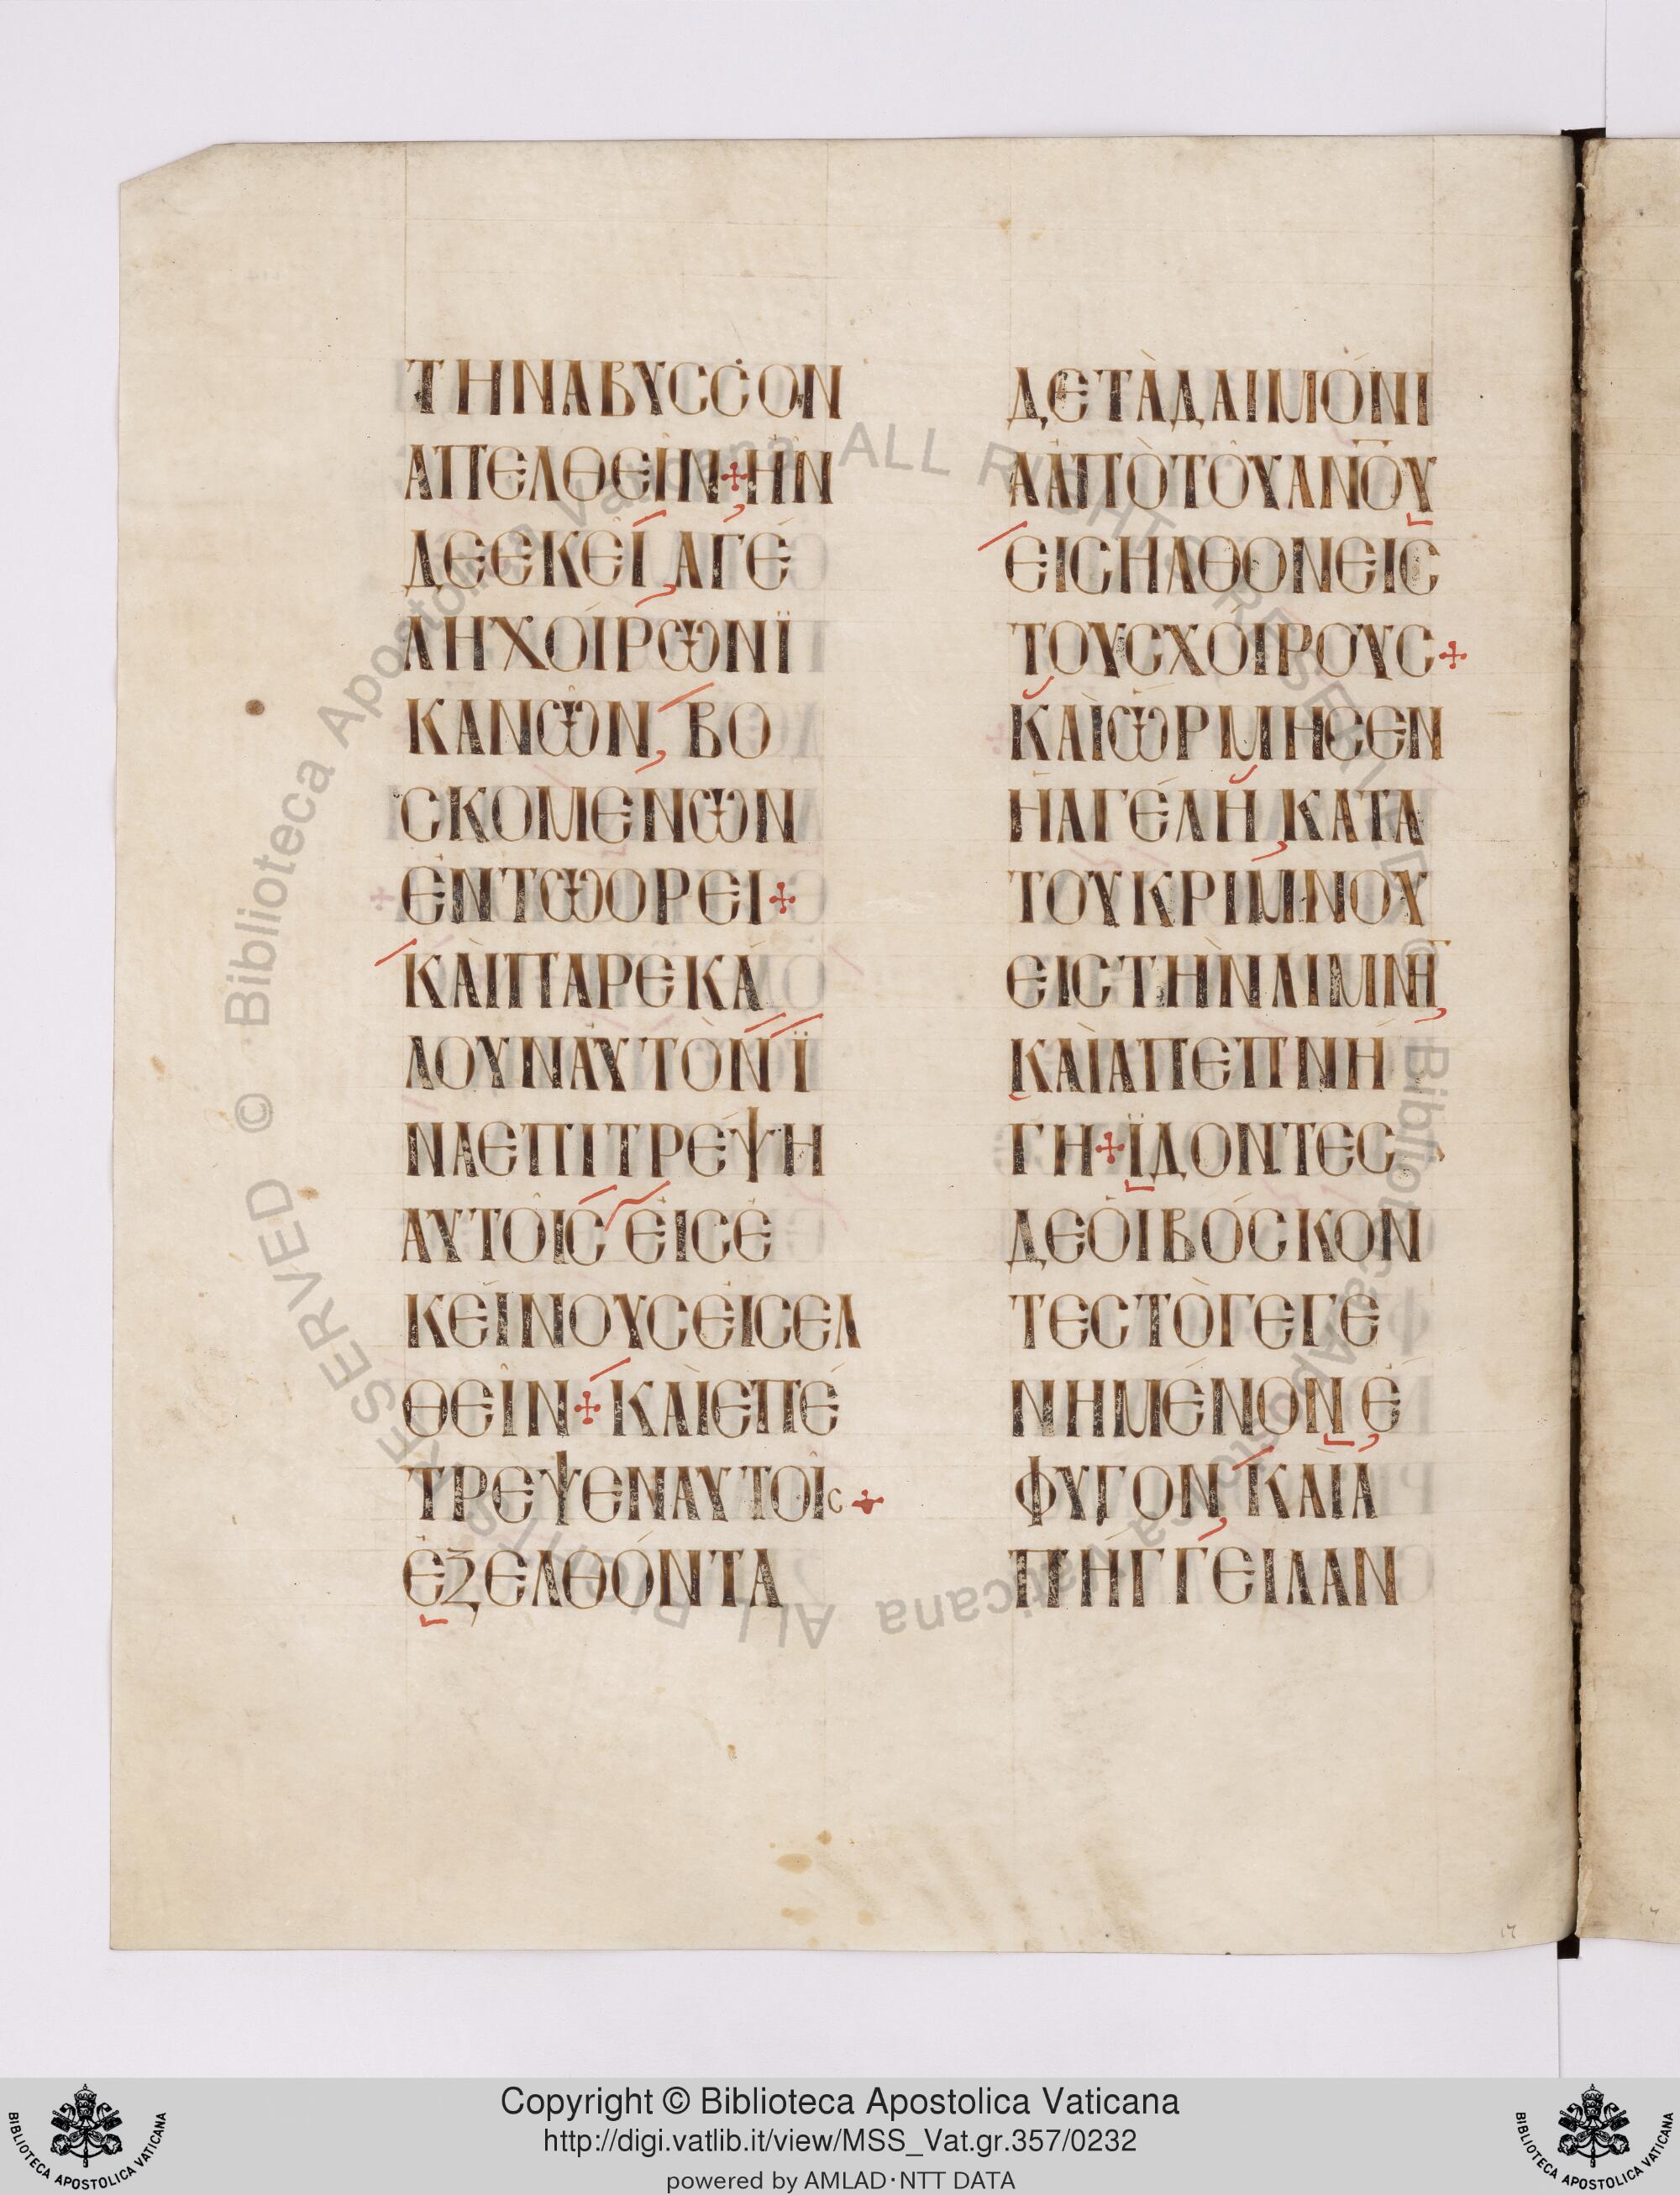 ΤΗΝΑΒΥΣΣΟΝ
ΑΠΕΛΘΕΙΝ+ΗΝ
ΔΕΕΚΕΙ,ΑΓΕ
ΛΗΧΟΙΡΩΝΪ
ΚΑΝΩΝ,ΒΟ
ΣΚΟΜΕΝΩΝ
ΕΝΤΩΟΡΕΙ+
ΚΑΙΠΑΡΕΚΑ
ΛΟΥΝΑΥΤΟΝΪ
ΝΑΕΠΙΤΡΕΨΗ
ΑΥΤΟΙΣ ΕΙΣΕ
ΚΕΙΝΟΥΣΕΙΣΕΛ
ΘΕΙΝ+ΚΑΙΕΠΕ
ΤΡΕΨΕΝΑΥΤΟΙΣ+
ΕΞΕΛΘΟΝΤΑ
ΔΕΤΑΔΑΙΜΟΝΙ
ΑΑΠΟΤΟΥΑΝΟΥ
ΕΙΣΗΛΘΟΝΕΙΣ
ΤΟΥΣΧΟΙΡΟΥΣ+
ΚΑΙΩΡΜΗΣΕΝ
ΗΑΓΕΛΗ,ΚΑΤΑ
ΤΟΥΚΡΙΜΝΟΥ
ΕΙΣΤΗΝΛΙΜΝΗ̅,
ΚΑΙΑΠΕΠΝΗ
ΓΗ+ΪΔΟΝΤΕΣ
ΔΕΟΙΒΟΣΚΟΝ
ΤΕΣΤΟΓΕΓΕ
ΝΗΜΕΝΟΝ,Ε
ΦΥΓΟΝ,ΚΑΙΑ
ΠΗΓΓΕΙΛΑΝ
17
© Biblioteca Apostolica Vaticana ALL RIGHTS RESERVED © Biblioteca Apostolica Vaticana ALL RIGHTS RESERVED
Copyright © Biblioteca Apostolica Vaticana
http://digi.vatlib.it/view/MSS_Vat.gr.357/0232
powered by AMLAD·NTT DATA
BIBLIOTECA APOSTOLICA VATICANA
BIBLIOTECA APOSTOLICA VATICANA